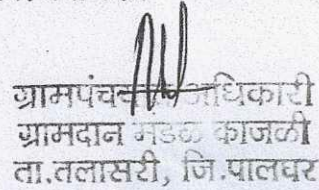 ग्रामपंचायत अधिकारी
ग्रामदान मंडळ काजळी
ता.तलासरी, जि.पालघर